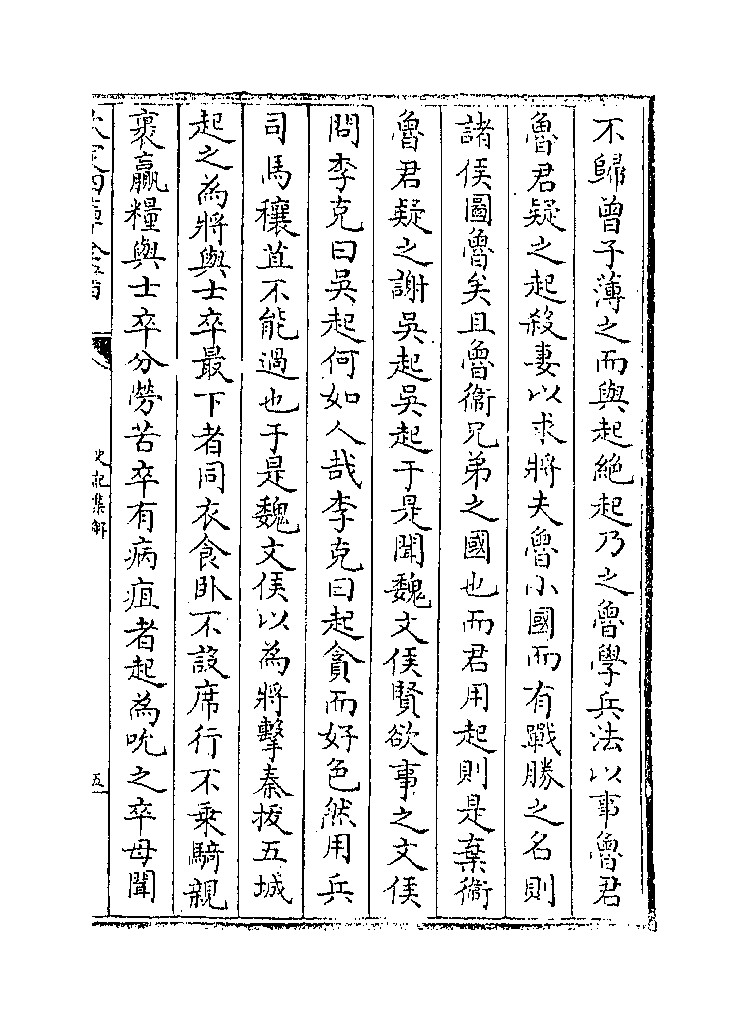 不歸曾子薄之而與起絶起乃之魯學兵法以事魯君
魯君疑之起殺妻以求將夫魯小國而有戰勝之名則
諸侯圖魯矣且魯衞兄弟之國也而君用起則是棄衞
魯君疑之謝吳起吳起于是聞魏文侯賢欲事之文侯
問李克曰吳起何如人哉李克曰起貪而好色然用兵
司馬穰苴不能過也于是魏文侯以為將擊秦拔五城
起之為將與士卒最下者同衣食卧不設席行不乗騎親
裹贏糧與士卒分勞苦卒有病疽者起為吮之卒母聞
史記集解
五